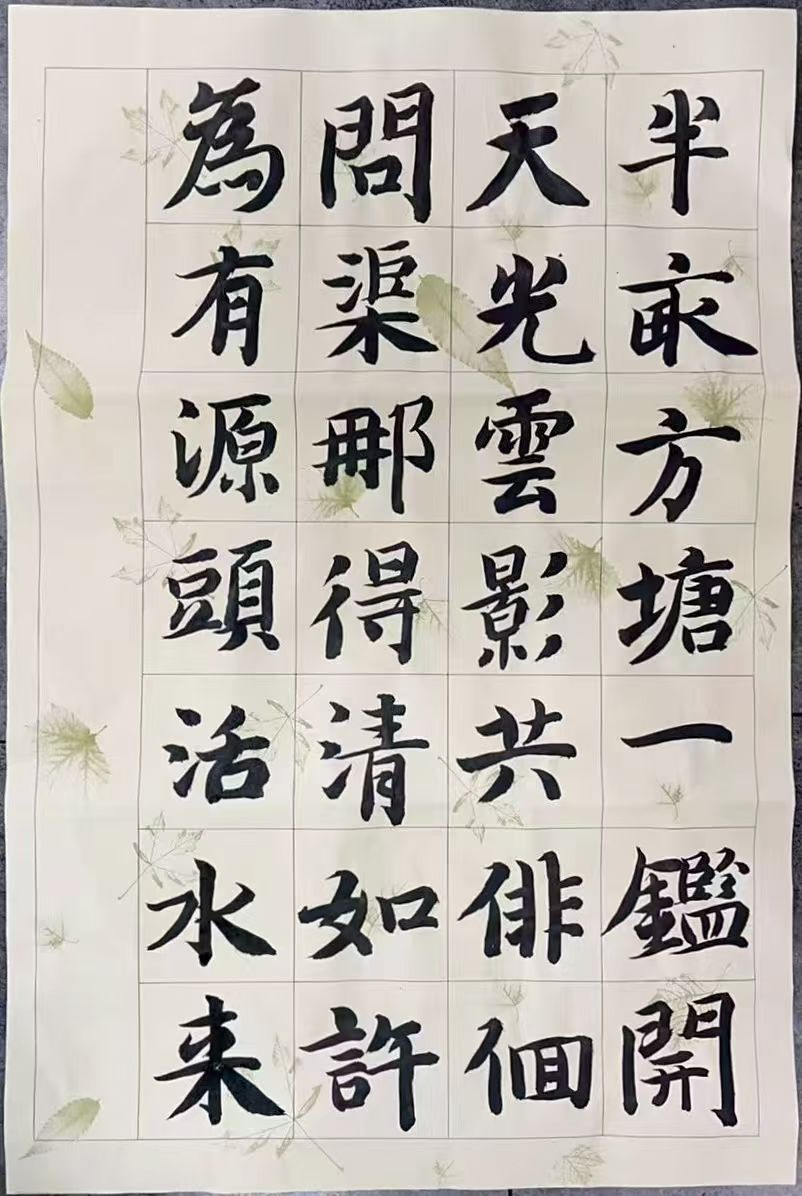 半畝方塘一鑑開
天光雲影共俳徊
問渠那得清如許
為有源頭活水来